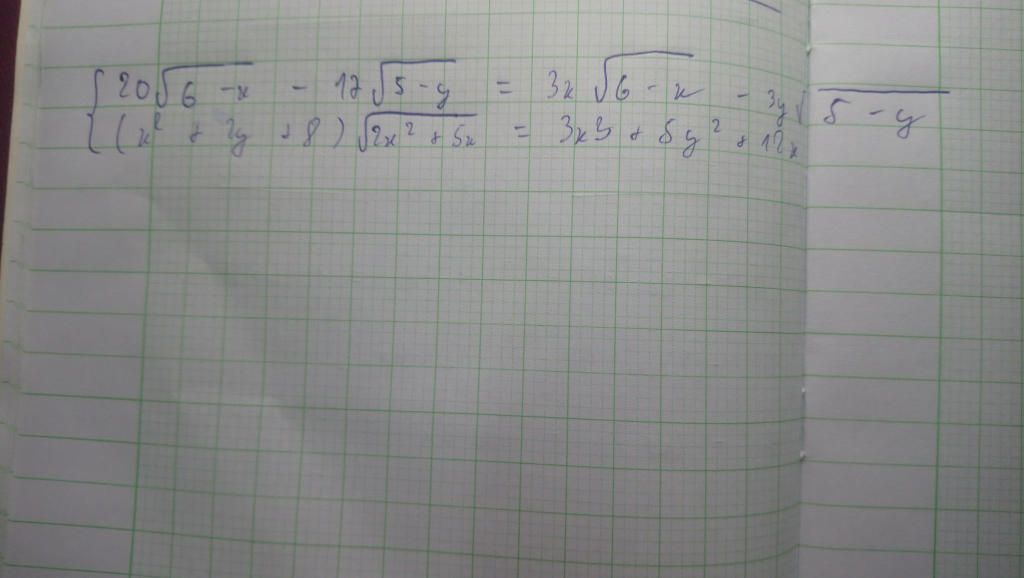 { 20√(6 - x) - 17√(5 - y) = 3x√(6 - x) - 3y√(5 - y)
(x² + 2y + 8)√(2x² + 5x) = 3x3 + 5y² + 12x